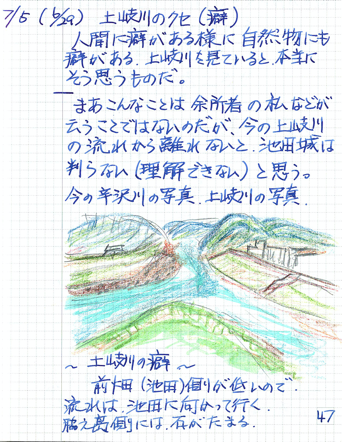 7/5 (6/29) 土岐川のクセ(癖)
人間に癖がある様に自然物にも
癖がある。土岐川を見ていると、本当に
そう思うものだ。
まあこんなことは余所者の私などが
云うことではないのだが、今の土岐川
の流れから離れないと、池田城は
判らない(理解できない)と思う。
今の平沢川の写真、土岐川の写真、
〜土岐川の癖〜
前畑(池田)側が低いので、
流れは、池田に向かって行く。
側には、石がたまる。
47